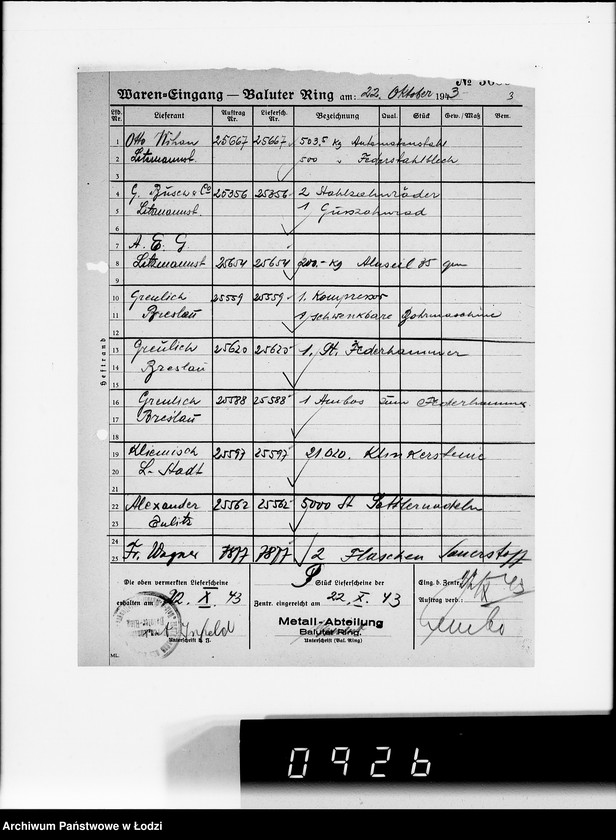 Waren-Eingang — Baluter Ring am: 22. Oktober 1943
3
Lfd. Nr. Lieferant Auftrag Nr. Liefersch. Nr. Bezeichnung Qual. Stück Gew./Maß Bem.
1 Otto 25667 25667 503.5 kg Automatenstahl
2 Litzmannst. 500 " Federstahlblech
3
4 G. Busch & Co 25356 25356 2 Stahlzahnräder
5 Litzmannst. 1 Gusszahnrad
6
7 A. E. G.
8 Litzmannst 25654 25654 200.- kg Aluseil 35 qm
9
10 Greulich 25559 25559 1. Kompressor
11 Breslau 1 schwenkbare Bohrmaschine
12
13 Greulich 25620 25620 1. St. Federhammer
14 Breslau
15
16 Greulich 25588 25588 1 Ambos zum Federhammer
17 Breslau
18
19 25597 25597 21 020. Klinkersteine
20 L-Stadt
21
22 Alexander 25562 25562 5000 St Sattlernadeln
23
24
25 Fr. Wagner 7877 7877 2 Flaschen Sauerstoff
Heftrand
Die oben vermerkten Lieferscheine 9 Stück Lieferscheine der Eing. b. Zentr.
erhalten am 22. X. 43 Zentr. eingereicht am 22. X. 43 22/X 43
Auftrag verb.:
Metall-Abteilung
Baluter Ring.
Unterschrift (Bal. Ring)
ML.
0926
Archiwum Państwowe w Łodzi